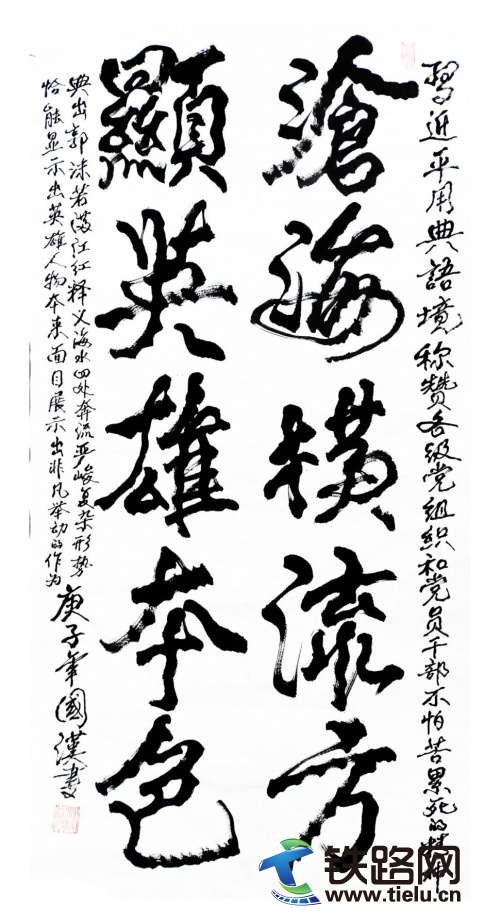 習近平用典語境称赞各级党组织和党员干部不怕苦累死的精神
滄海横流方
顯英雄本色
典出郭沫若滿江红释义海水四处奔流严峻复杂形势
恰能显示出英雄人物本来面目展示出非凡举动的作为
庚子年國漢書
铁路网
www.tielu.cn